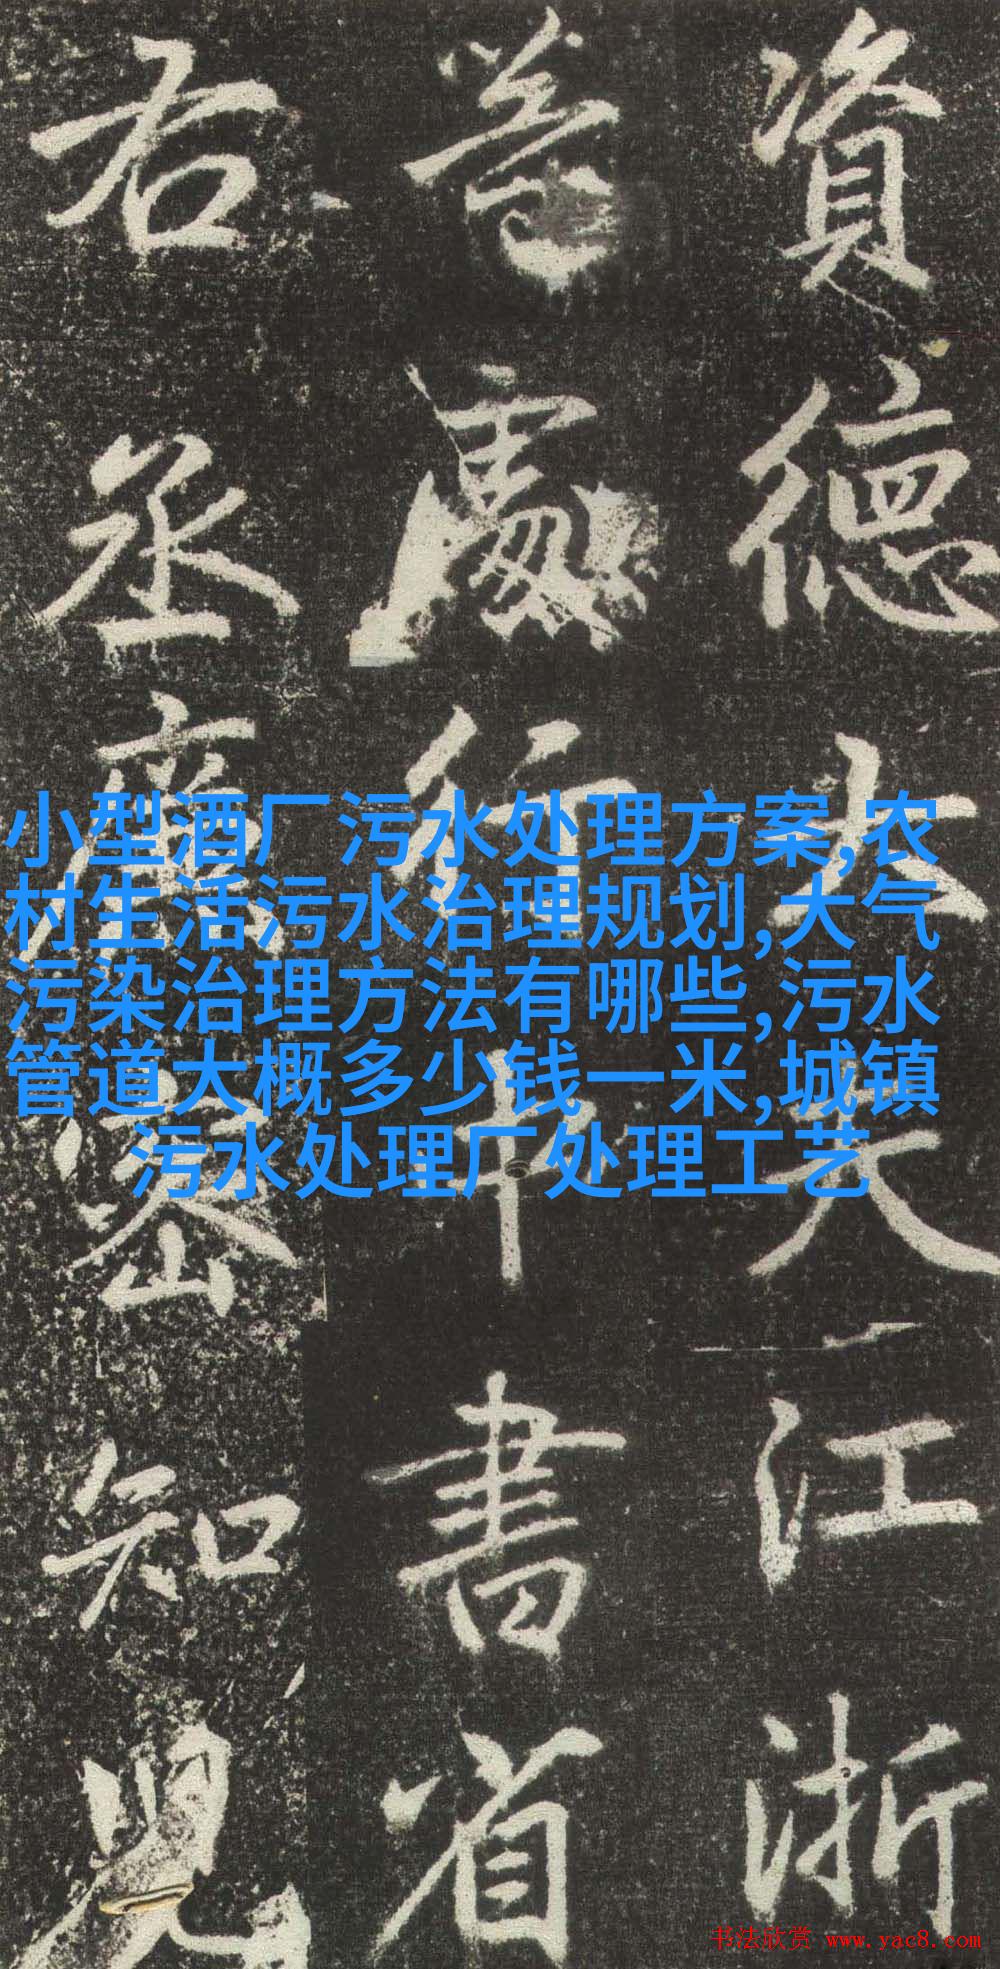 資德大夫江浙
等處行中書省
右丞
知
小型酒厂污水处理方案,农
村生活污水治理规划,大气
污染治理方法有哪些,污水
管道大概多少钱一米,城镇
污水处理厂处理工艺
书法欣赏 www.yac8.com